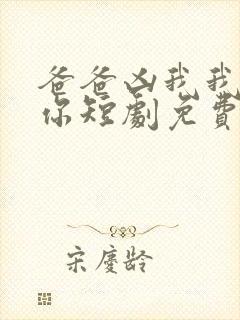 爸爸凶我我
你短劇免費
宋慶齡